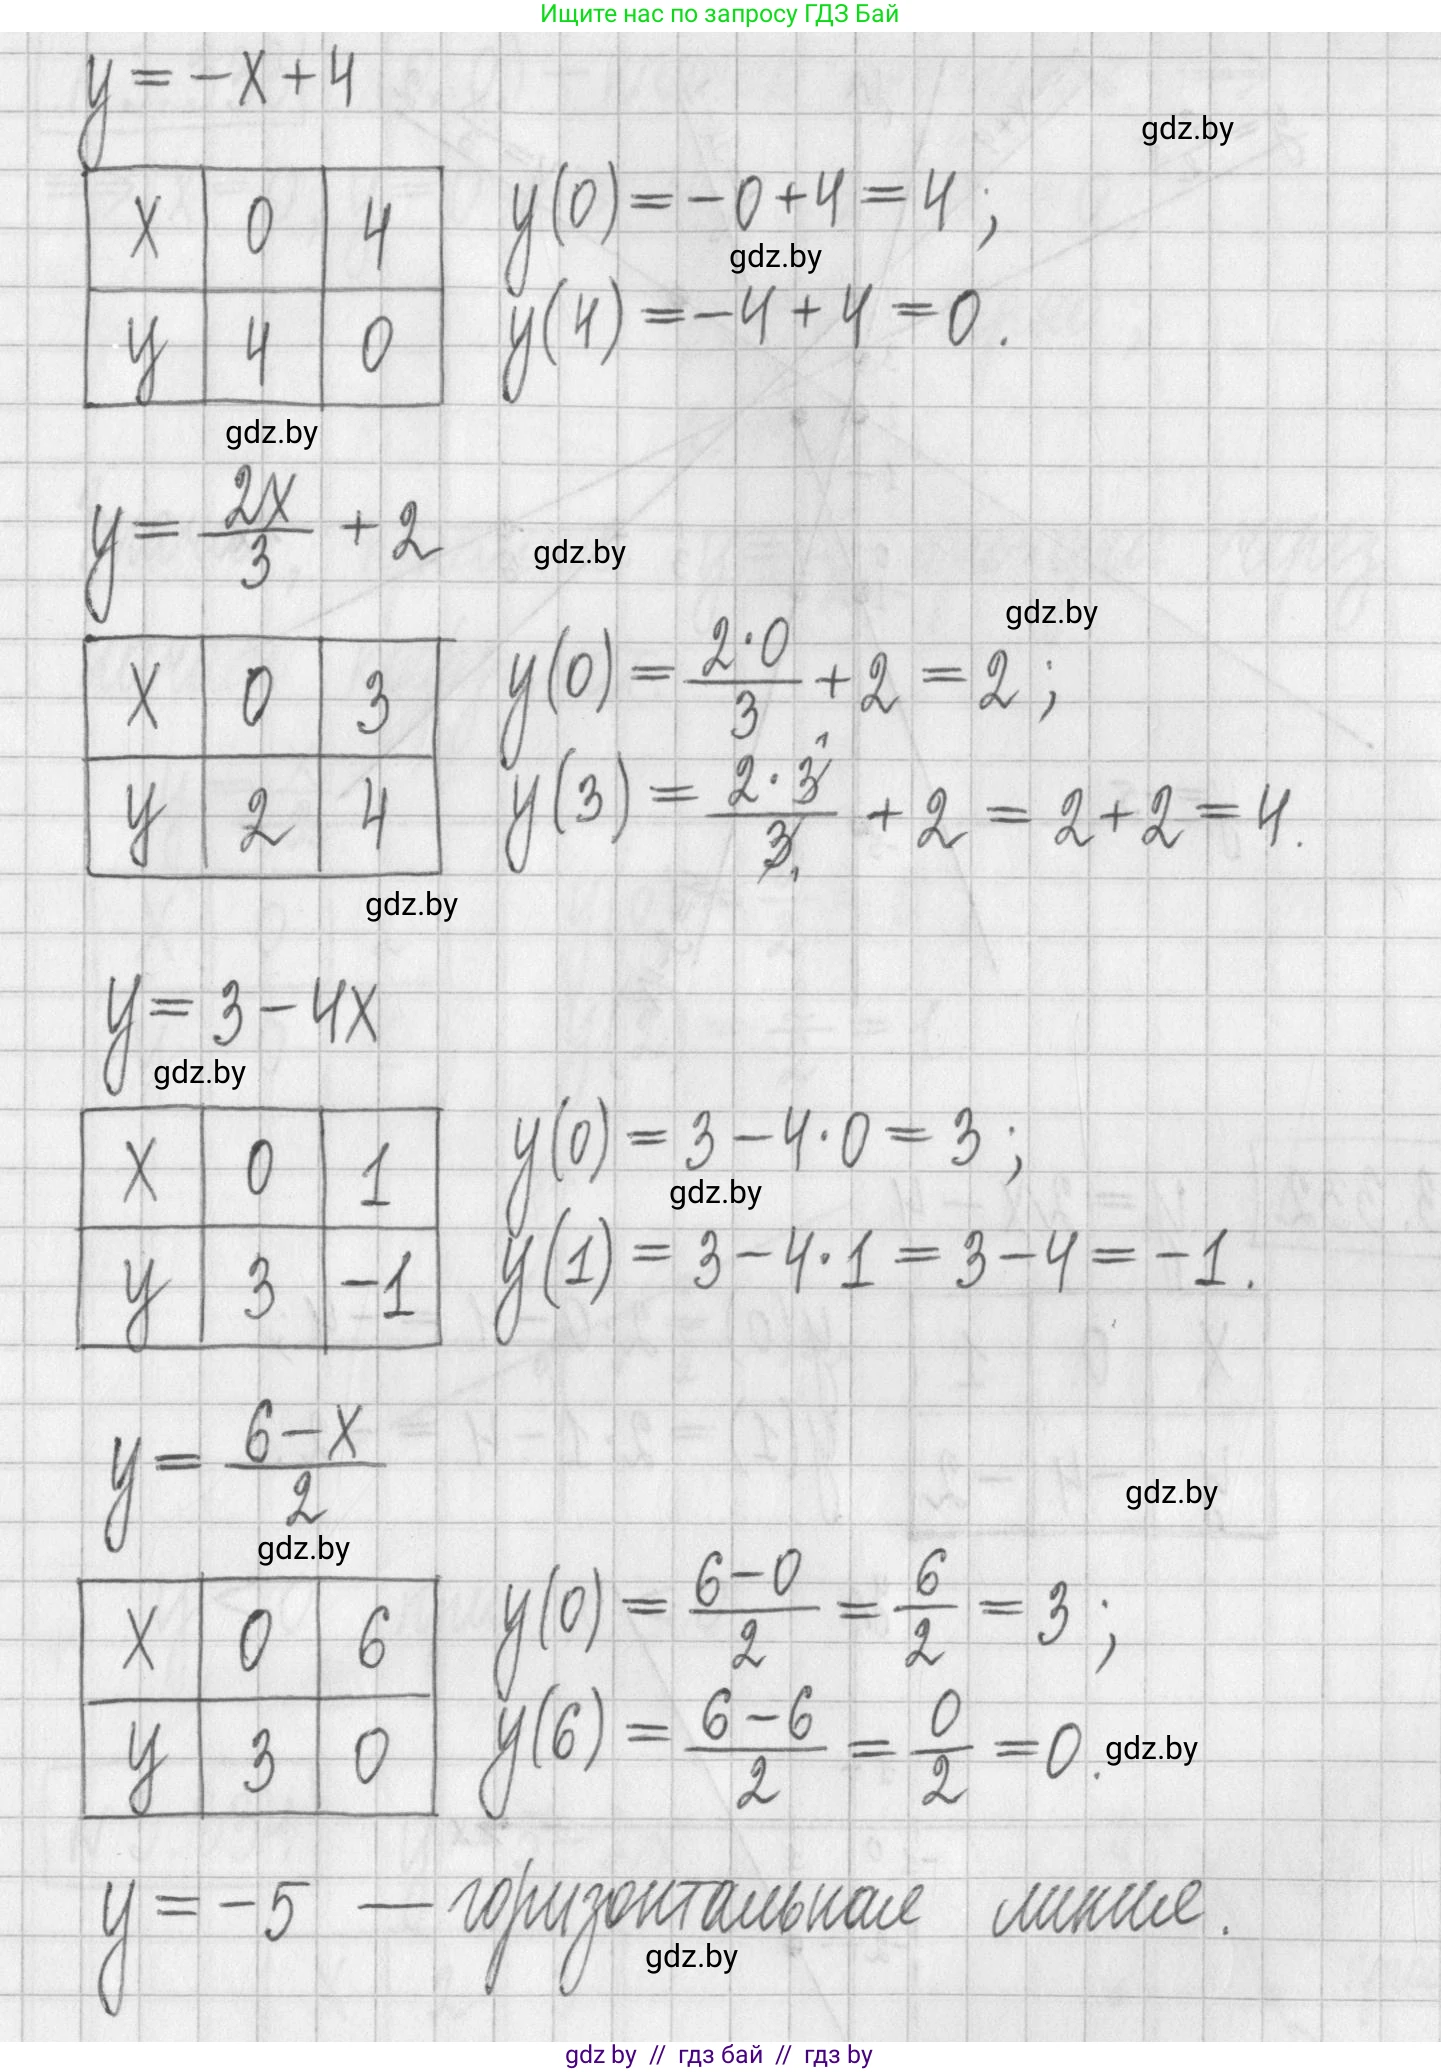 Ищите нас по запросу ГДЗ Бай
y = -x + 4
gdz.by
x 0 4
y 4 0
y(0) = -0 + 4 = 4 ;
gdz.by
y(4) = -4 + 4 = 0 .
gdz.by
y = 2x/3 + 2
gdz.by
gdz.by
x 0 3
y 2 4
y(0) = 2·0/3 + 2 = 2 ;
y(3) = 2·3/3 + 2 = 2 + 2 = 4 .
gdz.by
y = 3 - 4x
gdz.by
x 0 1
y 3 -1
y(0) = 3 - 4·0 = 3 ;
gdz.by
y(1) = 3 - 4·1 = 3 - 4 = -1 .
y = 6-x/2
gdz.by
gdz.by
x 0 6
y 3 0
y(0) = 6-0/2 = 6/2 = 3 ;
y(6) = 6-6/2 = 0/2 = 0 . gdz.by
y = -5 — горизонтальная линия .
gdz.by
gdz by // гдз бай // гдз by